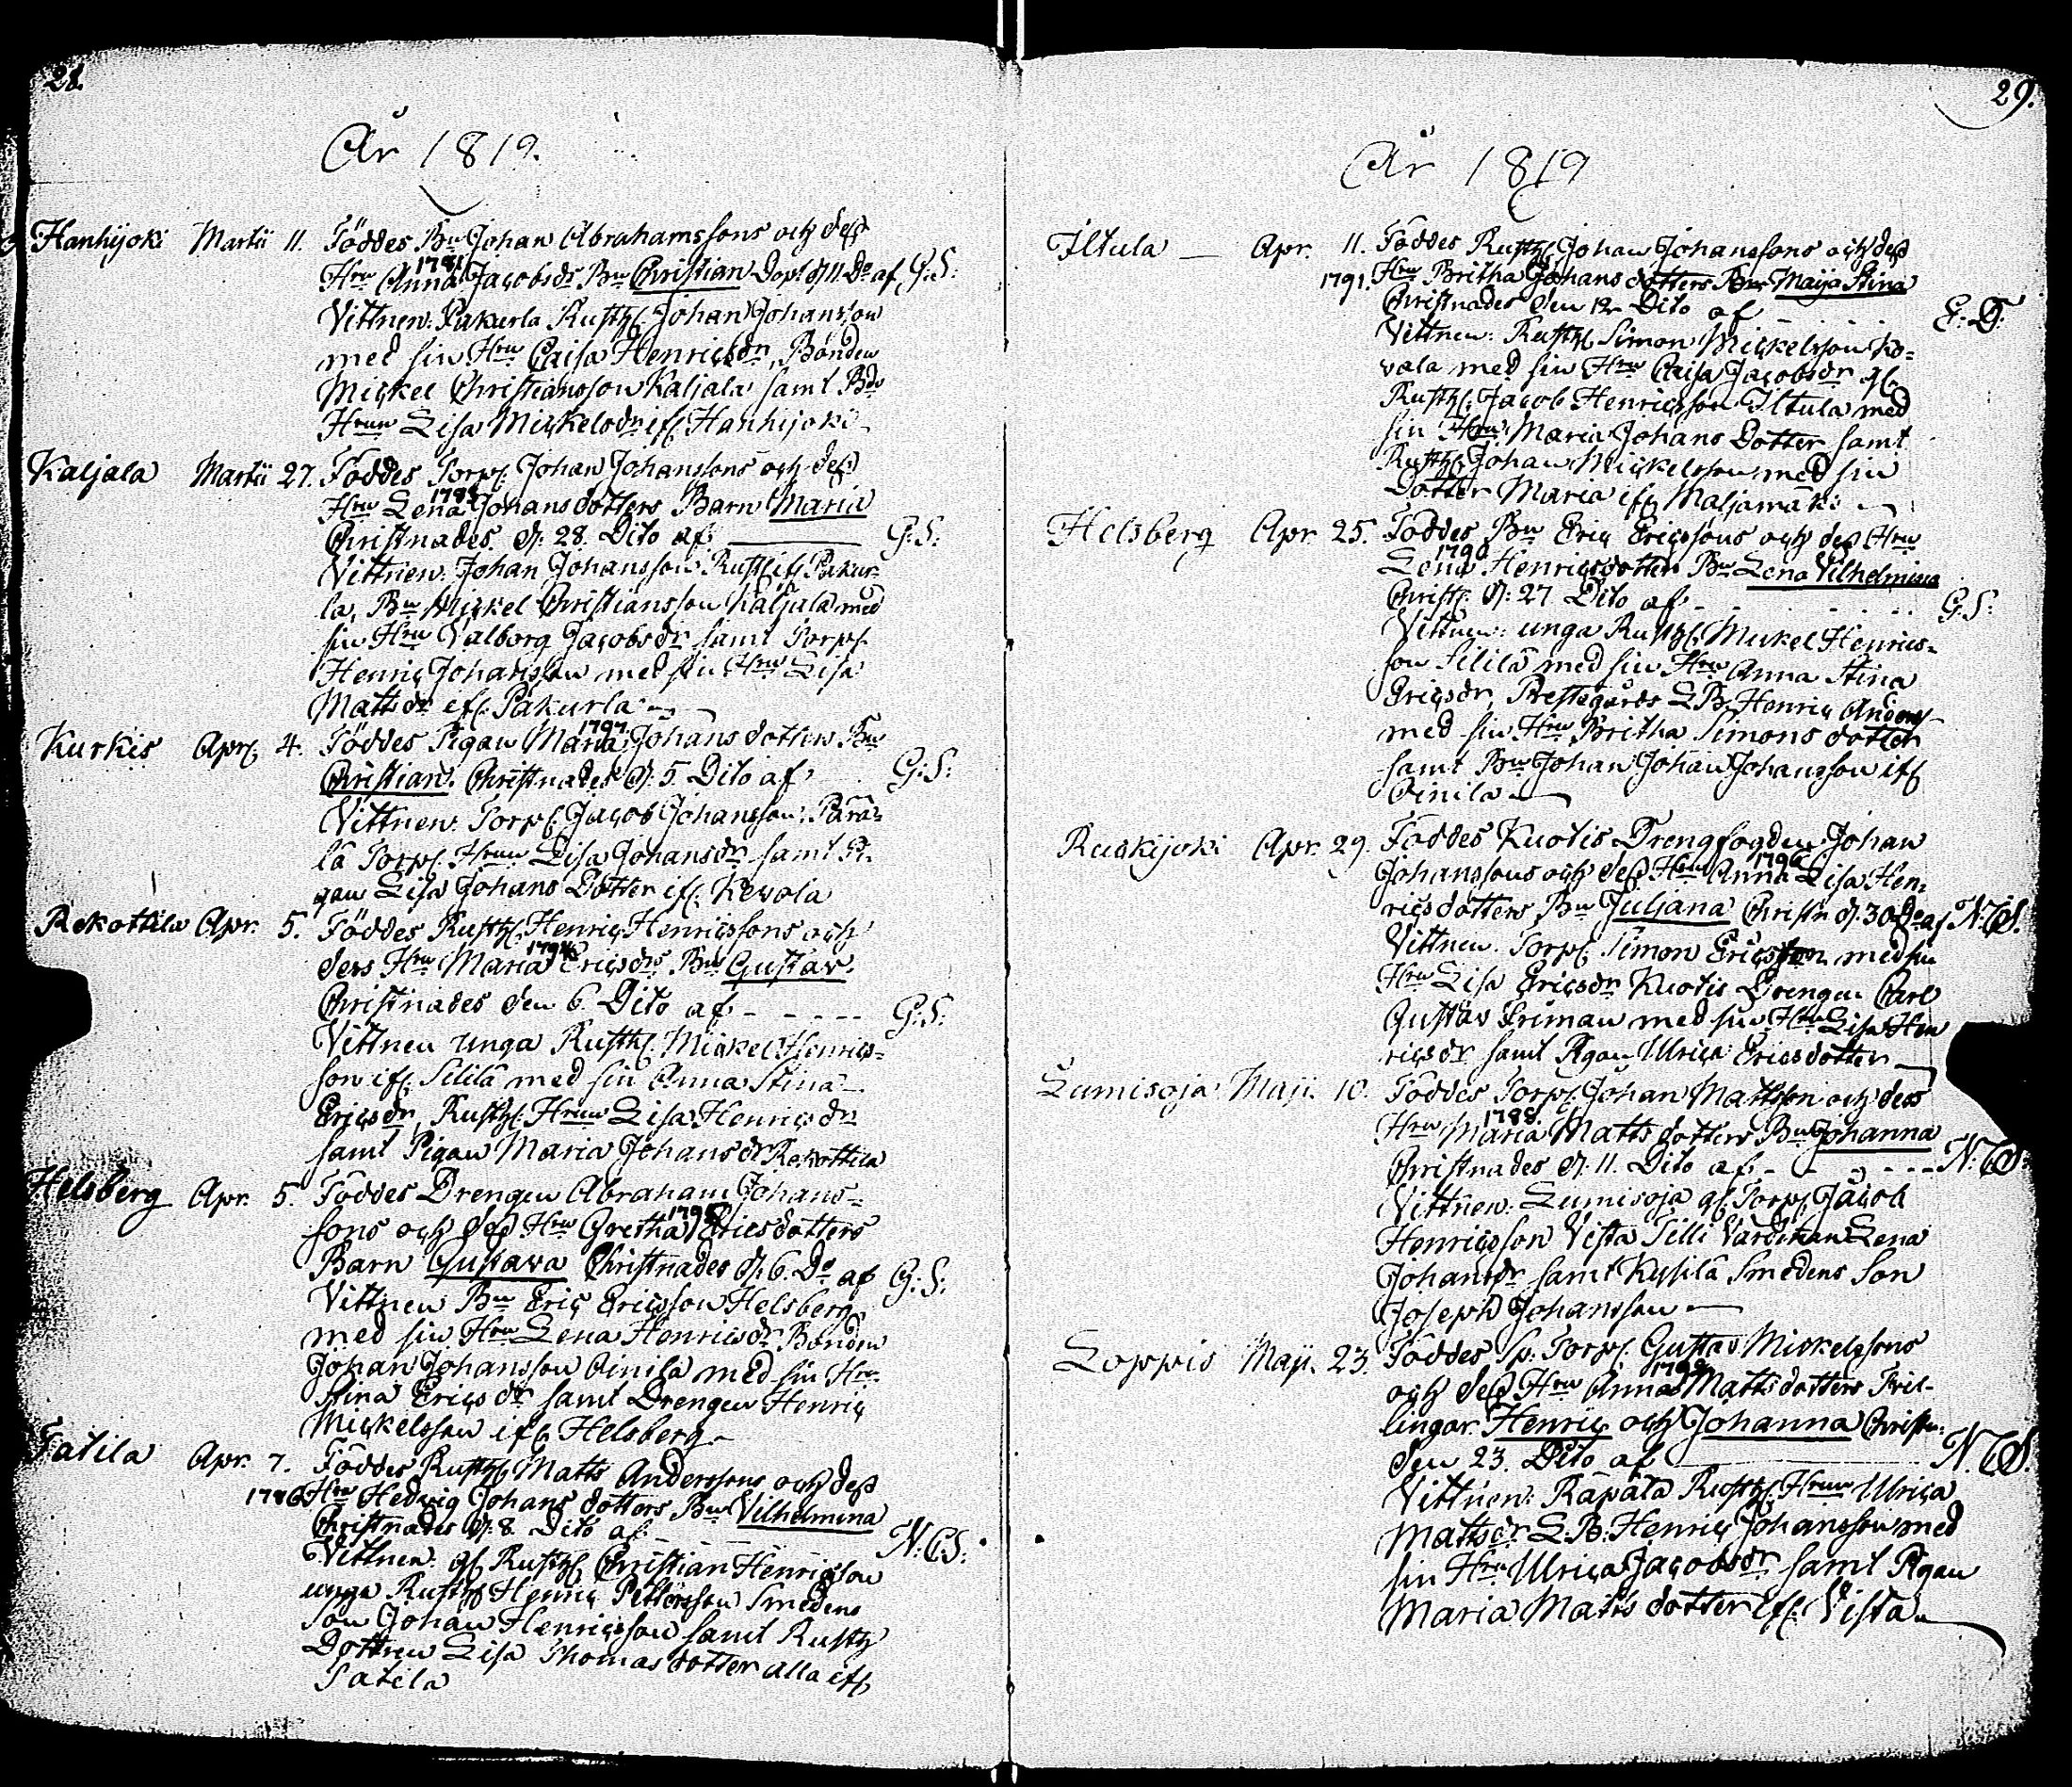 28.
År 1819.
Hanhijoki Martii 11. Föddes Bn Johan Abrahamssons och dess
Hru Anna 1781 Jacobsdr Bn Christian Döpt d. 11 Do af G:S:
Vittnen: Pakurla Rusth. Johan Johansson
med sin Hru Caisa Henricsdr, Bonden
Mickel Christiansson Kaljala samt Bd
Hrun Lisa Mickelsdr if. Hanhijoki
Kaljala Martii 27. Föddes Torp. Johan Johanssons och dess
Hru Lena Johansdotters Barn Maria
Christnades d. 28. Dito af G:S:
Vittnen: Johan Johansson Rusth. if. Pakur-
la, Bn Mickel Christiansson Kaljala med
sin Hru Valborg Jacobsdr samt Torp.
Henric Johansson med sin Hru Lisa
Mattsdr if. Pakurla
Kurkis Apr. 4. Föddes Pigan Maria 1797 Johansdotters Bn
Christian. Christnades d. 5 Dito af G:S:
Vittnen: Torp. Jacob Johansson, Para-
la Torp. Hrun Lisa Johansdr samt Pi-
gan Lisa Johans Dotter if. Kevola
Rekottila Apr. 5. Föddes Rusth. Henric Henricssons och
dess Hru Maria Ericsdrs Bn Gustav.
Christnades den 6. Dito af - - - - G:S:
Vittnen unga Rusth. Mickel Henrics-
son if. Sililä med sin Anna Stina
Ericsdr, Rusth. Hrun Lisa Henricsdr
samt Pigan Maria Johansdr Rekottila
Helsberg Apr. 5. Föddes Drengen Abraham Johans-
sons och dess Hru Gretha Ericsdotters
Barn Gustava Christnades d. 6. Do af G:S:
Vittnen Bn Eric Ericsson Helsberg
med sin Hru Lena Henricsdr Bonden
Johan Johansson Oinila med sin Hru
Stina Ericsdr samt Drengen Henric
Mickelsson if. Helsberg
Tatila Apr. 7. Föddes Rusth. Matts Anderssons och dess
1786 Hru Hedvig Johansdotters Bn Vilhelmina
Christnades d. 8 Dito af N.C.S:
Vittnen: gl. Rusth. Christian Henricsson
unga Rusth. Henric Pettersson Smedens
Son Johan Henricsson samt Rusth.
Dottren Lisa Thomasdotter alla if.
Tatila
29.
År 1819
Iltula Apr. 11. Föddes Rusth. Johan Johanssons och dess
1791. Hru Britha Johansdotters Bn Maija Stina
Christnades den 12 Dito af
Vittnen: Rusth. Simon Mickelsson Ko-
vala med sin Hru Caisa Jacobsdr gl.
Rusth. Jacob Henricsson Iltula med
sin Hru Maria Johans Dotter samt
Rusth. Johan Mickelsson med sin
Dotter Maria if. Maljamäki
Helsberg Apr. 25. Föddes Bn Eric Ericssons och dess Hru
Lena Henricsdotters Bn Lena Vilhelmina
Christ. d. 27 Dito af - G:S:
Vittnen: unga Rusth. Mickel Henrics-
son Sililä med sin Hru Anna Stina
Ericsdr, Prestegårds L.B. Henric Anderss
med sin Hru Britha Simonsdotter
samt Bn Johan Johan Johansson if.
Oinila
Ruskijoki Apr. 29. Föddes Kuotis Drengfogden Johan
Johanssons och dess Hru Anna Lisa Hen-
ricsdotters Bn Juljana Christn d. 30 Do af N.C.S.
Vittnen. Torp. Simon Ericsson med sin
Hru Lisa Ericsdr Kuotis Drengen Carl
Gustav Friman med sin Hru Lisa Hen
ricsdr samt Pigan Ulrica Ericsdotter
Lumisoja Maji. 10. Föddes Torp. Johan Mattsson och dess
Hru Maria 1788 Mattsdotters Bn Johanna
Christnades d. 11. Dito af - - - N.C.S:
Vittnen: Lumisoja gl. Torp. Jacob
Henricsson Vista Tilli Värdinan Lena
Johansdr samt Kysilä Smedens Son
Joseph Johansson
Loppis Maji. 23. Föddes Sp. Torp. Gustav Mickelssons
och dess Hru Anna Mattsdotters Tvil-
lingar Henric och Johanna Christn:
den 23. Dito af N.C.S.
Vittnen: Räpälä Rusth. Hrun Ulrica
Mattsdr L.B. Henric Johansson med
sin Hru Ulrica Jacobsdr samt Pigan
Maria Mattsdotter if. Vista